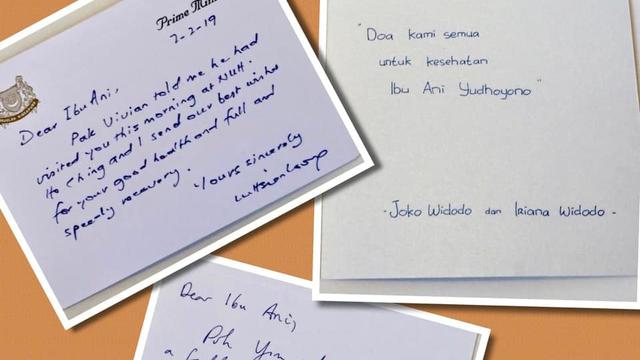 Prime Min
7-2-19
Dear Ibu Ani,
Pak Vivian told me he had
visited you this morning at NUH.
Ho Ching and I send our best wishes
for your good health and full and
speedy recovery.
Yours sincerely
"Doa kami semua
untuk kesehatan
Ibu Ani Yudhoyono"
- Joko Widodo dan Iriana Widodo -
Dear Ibu Ani,
a